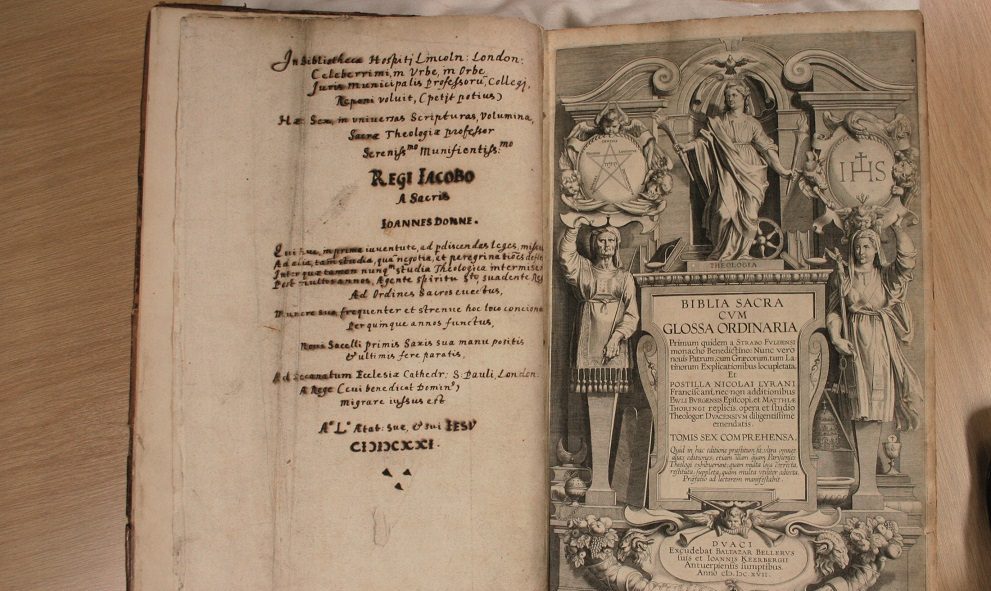 In Bibliotheca Hospitij Lincoln: London:
Celeberrimi, in Urbe, in Orbe,
Juris Municipalis Professorū, Collegij,
Reponi voluit, (petijt potius)
Hæ Sex, in vniuersas Scripturas, Volumina,
Sacræ Theologiæ professor
Sereniss:mo Munificentiss:mo
REGI IACOBO
A Sacris
IOANNES DONNE.
Qui huc, in prima iuventute, ad pdiscendas leges,
Ad alia, tam studia, quā negotia, et peregrinatiōes
Inter quæ tamen nunqm studia Theologica
Post multos annos, Agente Spiritu Sto, suadente
Ad Ordines Sacros euectus,
Munere suo frequenter et strenue hoc loco
Per quinque annos functus,
Noui Sacelli primis Saxis sua manu positis
& ultimis fere paratis,
Ad Decanatum Ecclesiæ Cathedr: S. Pauli, London:
A Rege (cui benedicat Dominus)
Migrare iussus est
Ao Lo Ætat: Suæ, & sui IESV
CIƆIƆCXXI.
THEOLOGIA
IHS
BIBLIA SACRA
CVM
GLOSSA ORDINARIA
Primum quidem a STRABO FVLDENSI
monacho Benedictino: Nunc vero
nouis Patrum, cum Græcorum, tum La-
tinorum Explicationibus locupletata.
Et
POSTILLA NICOLAI LYRANI
Franciscani, nec non additionibus
PAVLI BVRGENSIS Episcopi, et MATTHIÆ
THORINGI replicis, opera et studio
Theologor. DVACENSIVM diligentissime
emendatis.
TOMIS SEX COMPREHENSA.
Quid in hac editione præstitum sit, vltra omnes
alias editiones, etiam illam quam Parisienses
Theologi exhibuerunt; quam multa loca correcta,
restituta, suppleta, quam multa vtiliter adiecta,
Præfatio ad lectorem manifestabit.
DVACI
Excudebat BALTAZAR BELLERVS
suis et IOANNIS KEERBERGII
Antuerpiensis sumptibus.
Anno CIƆ.IƆC XVII.